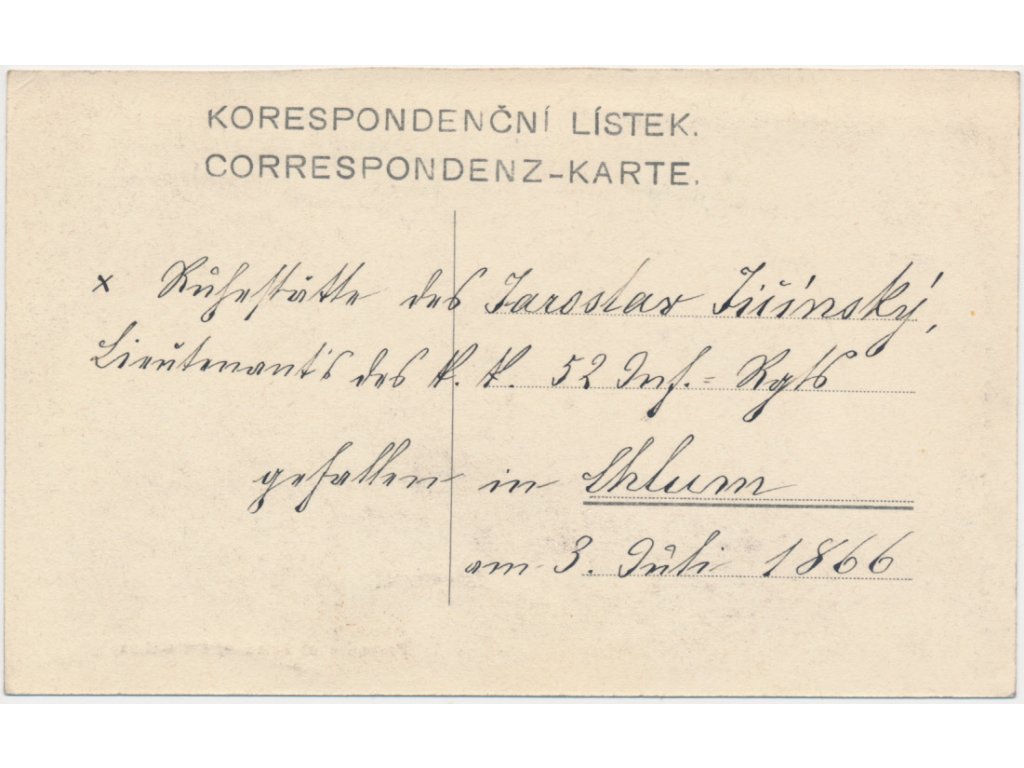 KORESPONDENČNÍ LÍSTEK.
CORRESPONDENZ-KARTE.
x Ruhestätte des Jaroslav Jičínský,
Lieutenants des k. k. 52 Inf.= Rgts
gefallen in Chlum
am 3. Juli 1866